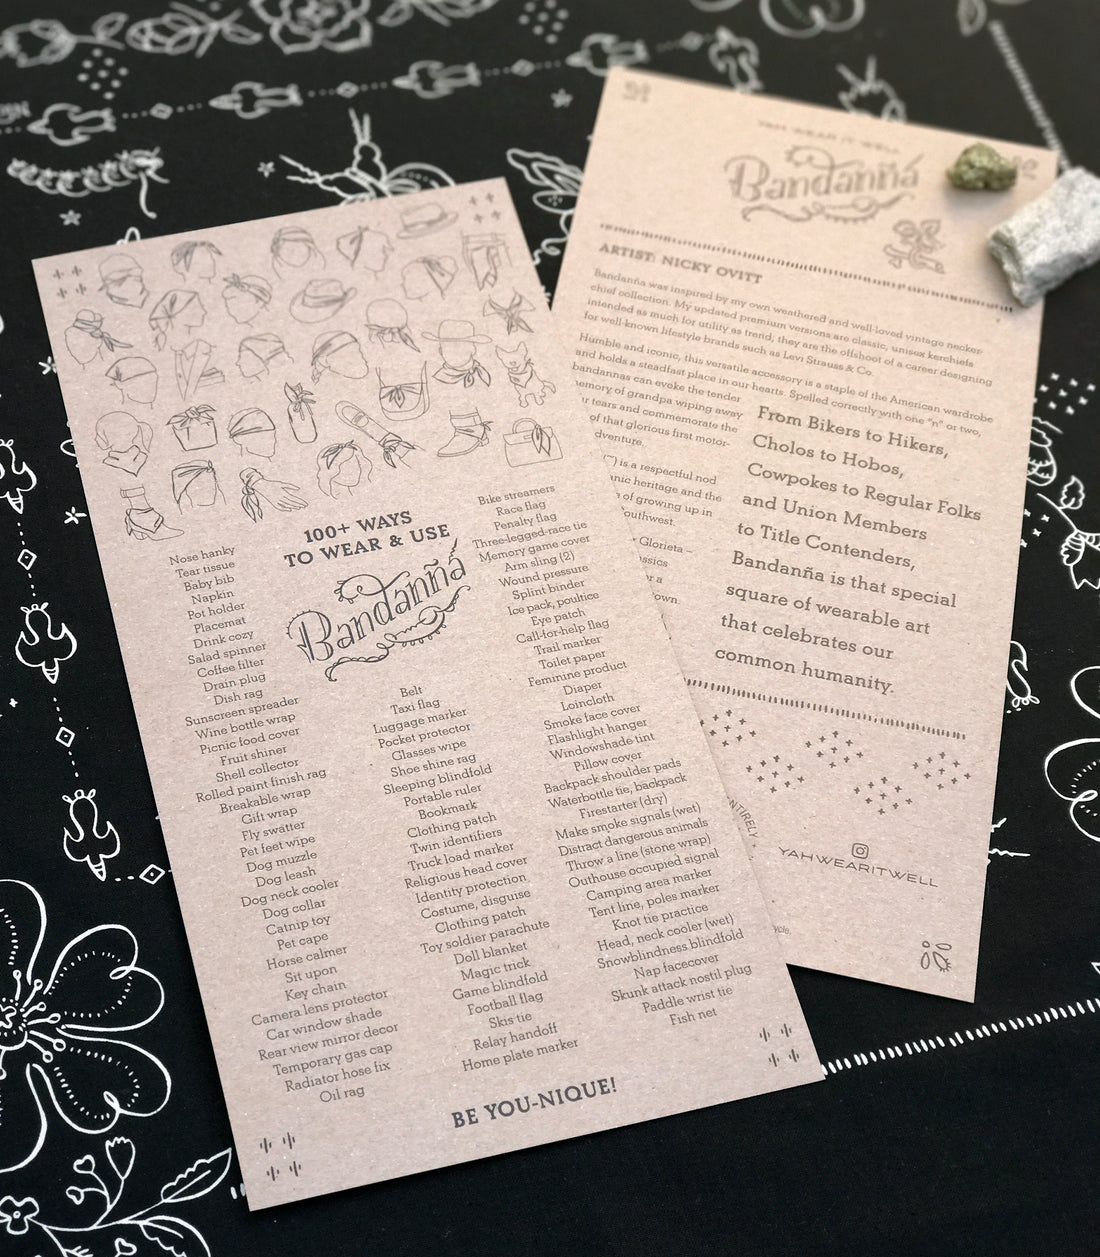 100+ WAYS
TO WEAR & USE
Bandanñá
Nose hanky
Tear tissue
Baby bib
Napkin
Pot holder
Placemat
Drink cozy
Salad spinner
Coffee filter
Drain plug
Dish rag
Sunscreen spreader
Wine bottle wrap
Picnic food cover
Fruit shiner
Shell collector
Rolled paint finish rag
Breakable wrap
Gift wrap
Fly swatter
Pet feet wipe
Dog muzzle
Dog leash
Dog neck cooler
Dog collar
Catnip toy
Pet cape
Horse calmer
Sit upon
Key chain
Camera lens protector
Car window shade
Rear view mirror decor
Temporary gas cap
Radiator hose fix
Oil rag
Belt
Taxi flag
Luggage marker
Pocket protector
Glasses wipe
Shoe shine rag
Sleeping blindfold
Portable ruler
Bookmark
Clothing patch
Twin identifiers
Truck load marker
Religious head cover
Identity protection
Costume, disguise
Clothing patch
Toy soldier parachute
Doll blanket
Magic trick
Game blindfold
Football flag
Skis tie
Relay handoff
Home plate marker
Bike streamers
Race flag
Penalty flag
Three-legged-race tie
Memory game cover
Arm sling (2)
Wound pressure
Splint binder
Ice pack, poultice
Eye patch
Call-for-help flag
Trail marker
Toilet paper
Feminine product
Diaper
Loincloth
Smoke face cover
Flashlight hanger
Windowshade tint
Pillow cover
Backpack shoulder pads
Waterbottle tie, backpack
Firestarter (dry)
Make smoke signals (wet)
Distract dangerous animals
Throw a line (stone wrap)
Outhouse occupied signal
Camping area marker
Tent line, poles marker
Knot tie practice
Head, neck cooler (wet)
Snowblindness blindfold
Nap facecover
Skunk attack nostil plug
Paddle wrist tie
Fish net
BE YOU-NIQUE!
YAH WEAR IT WELL
Bandanñá
ARTIST: NICKY OVITT
Bandanña was inspired by my own weathered and well-loved vintage necker-
chief collection. My updated premium versions are classic, unisex kerchiefs
intended as much for utility as trend; they are the offshoot of a career designing
for well-known lifestyle brands such as Levi Strauss & Co.
Humble and iconic, this versatile accessory is a staple of the American wardrobe
and holds a steadfast place in our hearts. Spelled correctly with one "n" or two,
bandannas can evoke the tender
memory of grandpa wiping away
tears and commemorate the
of that glorious first motor-
dventure.
is a respectful nod
heritage and the
of growing up in
Glorieta –
From Bikers to Hikers,
Cholos to Hobos,
Cowpokes to Regular Folks
and Union Members
to Title Contenders,
Bandanña is that special
square of wearable art
that celebrates our
common humanity.
NTIRELY
YAHWEARITWELL